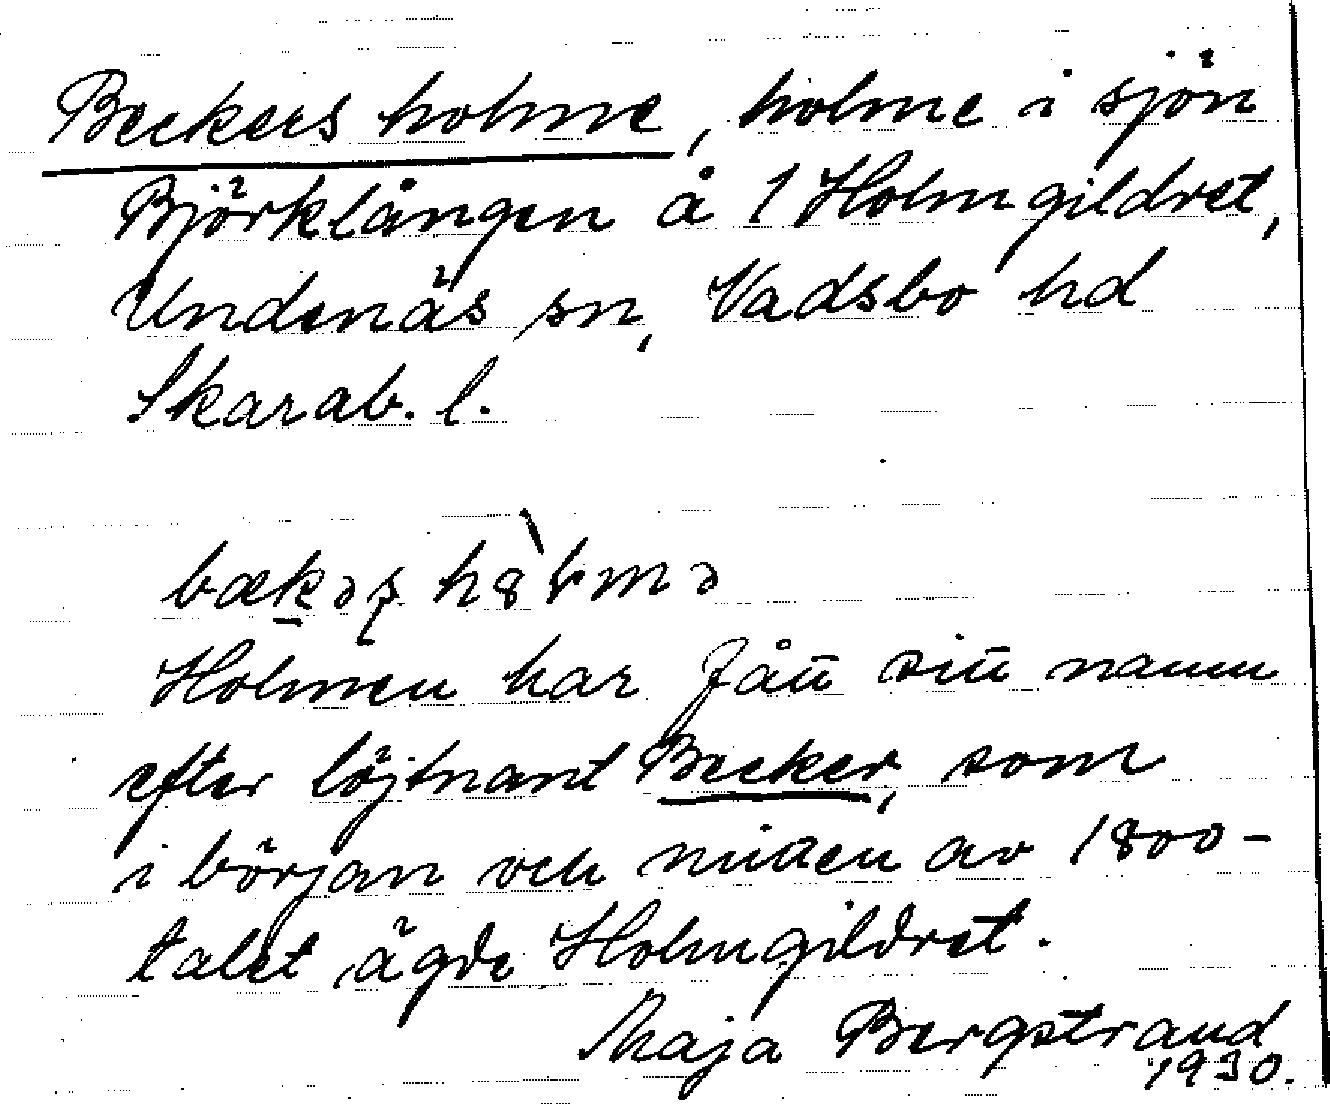 Beckers holme, holme i sjön
Björklången å 1 Holmgildret,
Undenäs sn, Vadsbo hd
Skarab. l.
Holmen har fått sitt namn
efter löjtnant Becker, som
i början och mitten av 1800-
talet ägde Holmgildret.
Maja Bergstrand
1930.